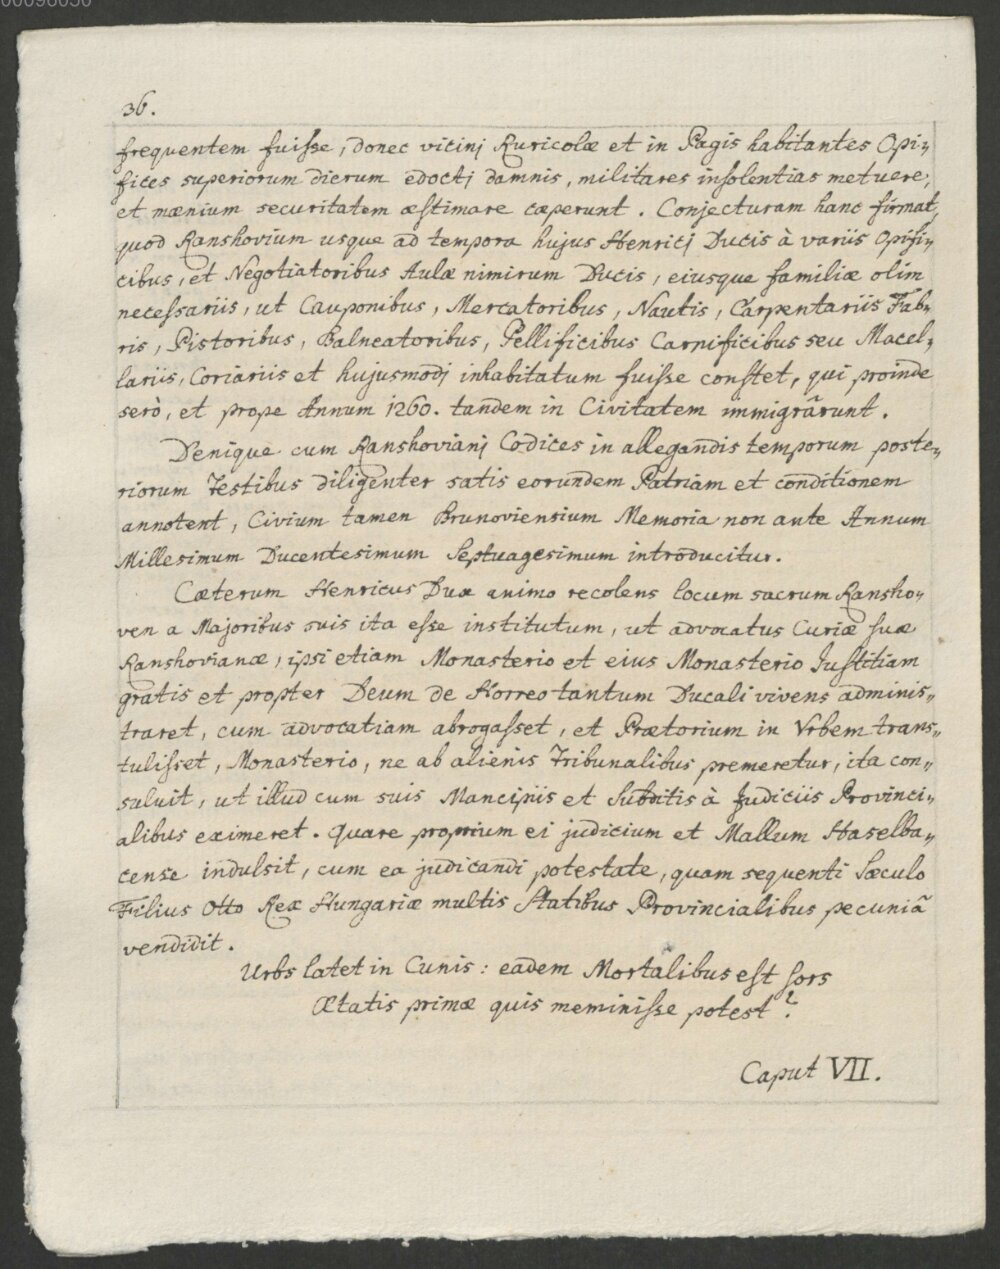 00096050
36.
frequentem fuisse, donec vicinj Ruricolæ et in Pagis habitantes Opi„
fices superiorum dierum edoctj damnis, militares insolentias metuere,
et mænium securitatem æstimare cæperunt. Conjecturam hanc firmat,
quod Ranshovium usque ad tempora hujus Henricj Ducis à variis Opifi„
cibus, et Negotiatoribus Aulæ nimirum Ducis, eiusque familiæ olim
necessariis, ut Cauponibus, Mercatoribus, Nautis, Carpentariis Fab„
ris, Pistoribus, Balneatoribus, Pellificibus Carnificibus seu Macel„
lariis, Coriariis et hujusmodj inhabitatum fuisse constet, qui proinde
serò, et prope Annum 1260. tandem in Civitatem immigrârunt.
Denique cum Ranshovianj Codices in allegandis temporum poste„
riorum Testibus diligenter satis eorundem Patriam et conditionem
annotent, Civium tamen Brunoviensium Memoria non ante Annum
Millesimum Ducentesimum Septuagesimum introducitur.
Cæterum Henricus Dux animo recolens locum sacrum Ransho„
ven a Majoribus suis ita esse institutum, ut advocatus Curiæ suæ
Ranshovianæ, ipsi etiam Monasterio et eius Monasterio Justitiam
gratis et propter Deum de Horreo tantum Ducali vivens adminis„
traret, cum advocatiam abrogasset, et Prætorium in Urbem trans„
tulisset, Monasterio, ne ab alienis Tribunalibus premeretur, ita con„
suluit, ut illud cum suis Mancipiis et Subditis à Judiciis Provinci„
alibus eximeret. Quare proprium ei judicium et Mallum Haselba„
cense indulsit, cum ea judicandi potestate, quam sequenti Sæculo
Filius Otto Rex Hungariæ multis Statibus Provincialibus pecuniâ
vendidit.
Urbs latet in Cunis: eadem Mortalibus est sors
Ætatis primæ quis meminisse potest?
Caput VII.